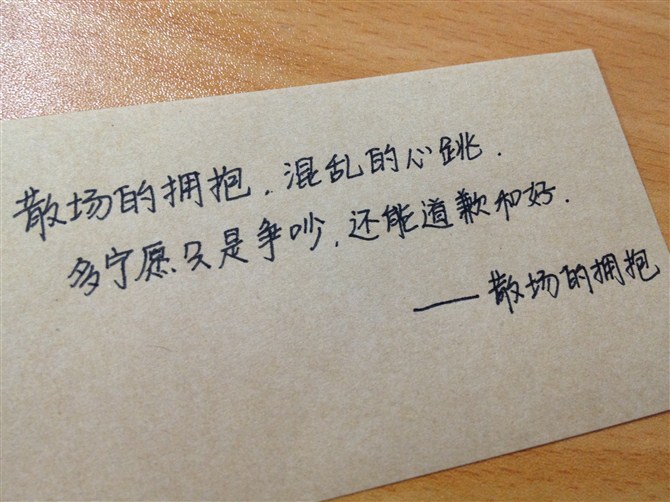 散场的拥抱.混乱的心跳.
多宁愿只是争吵,还能道歉和好.
——散场的拥抱